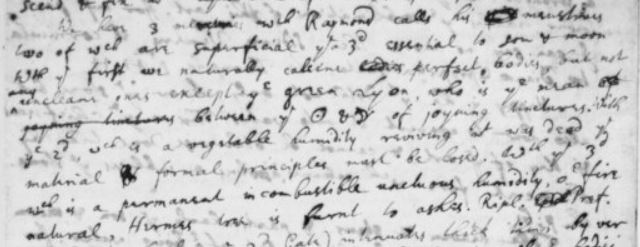 We have 3 menstruums wch Raymond calls his menstrues
two of wch are superficial ye 3d essential to son & moon
Wth ye first we naturally calcine perfect bodies, but not
any uncleane ones except ye green Lyon who is ye mean of
joyning tinctures between ye ☉ & of joyning tinctures. With
ye 2d, wch is a vegetable humidity reviving wt was dead ye
material & formal principles must be losed. Wth ye 3d
wch is a permanent incombustible unctuous humidity, of fire
natural, Hermes tree is burnt to ashes. Ripl. Pref.
intimates these by ver